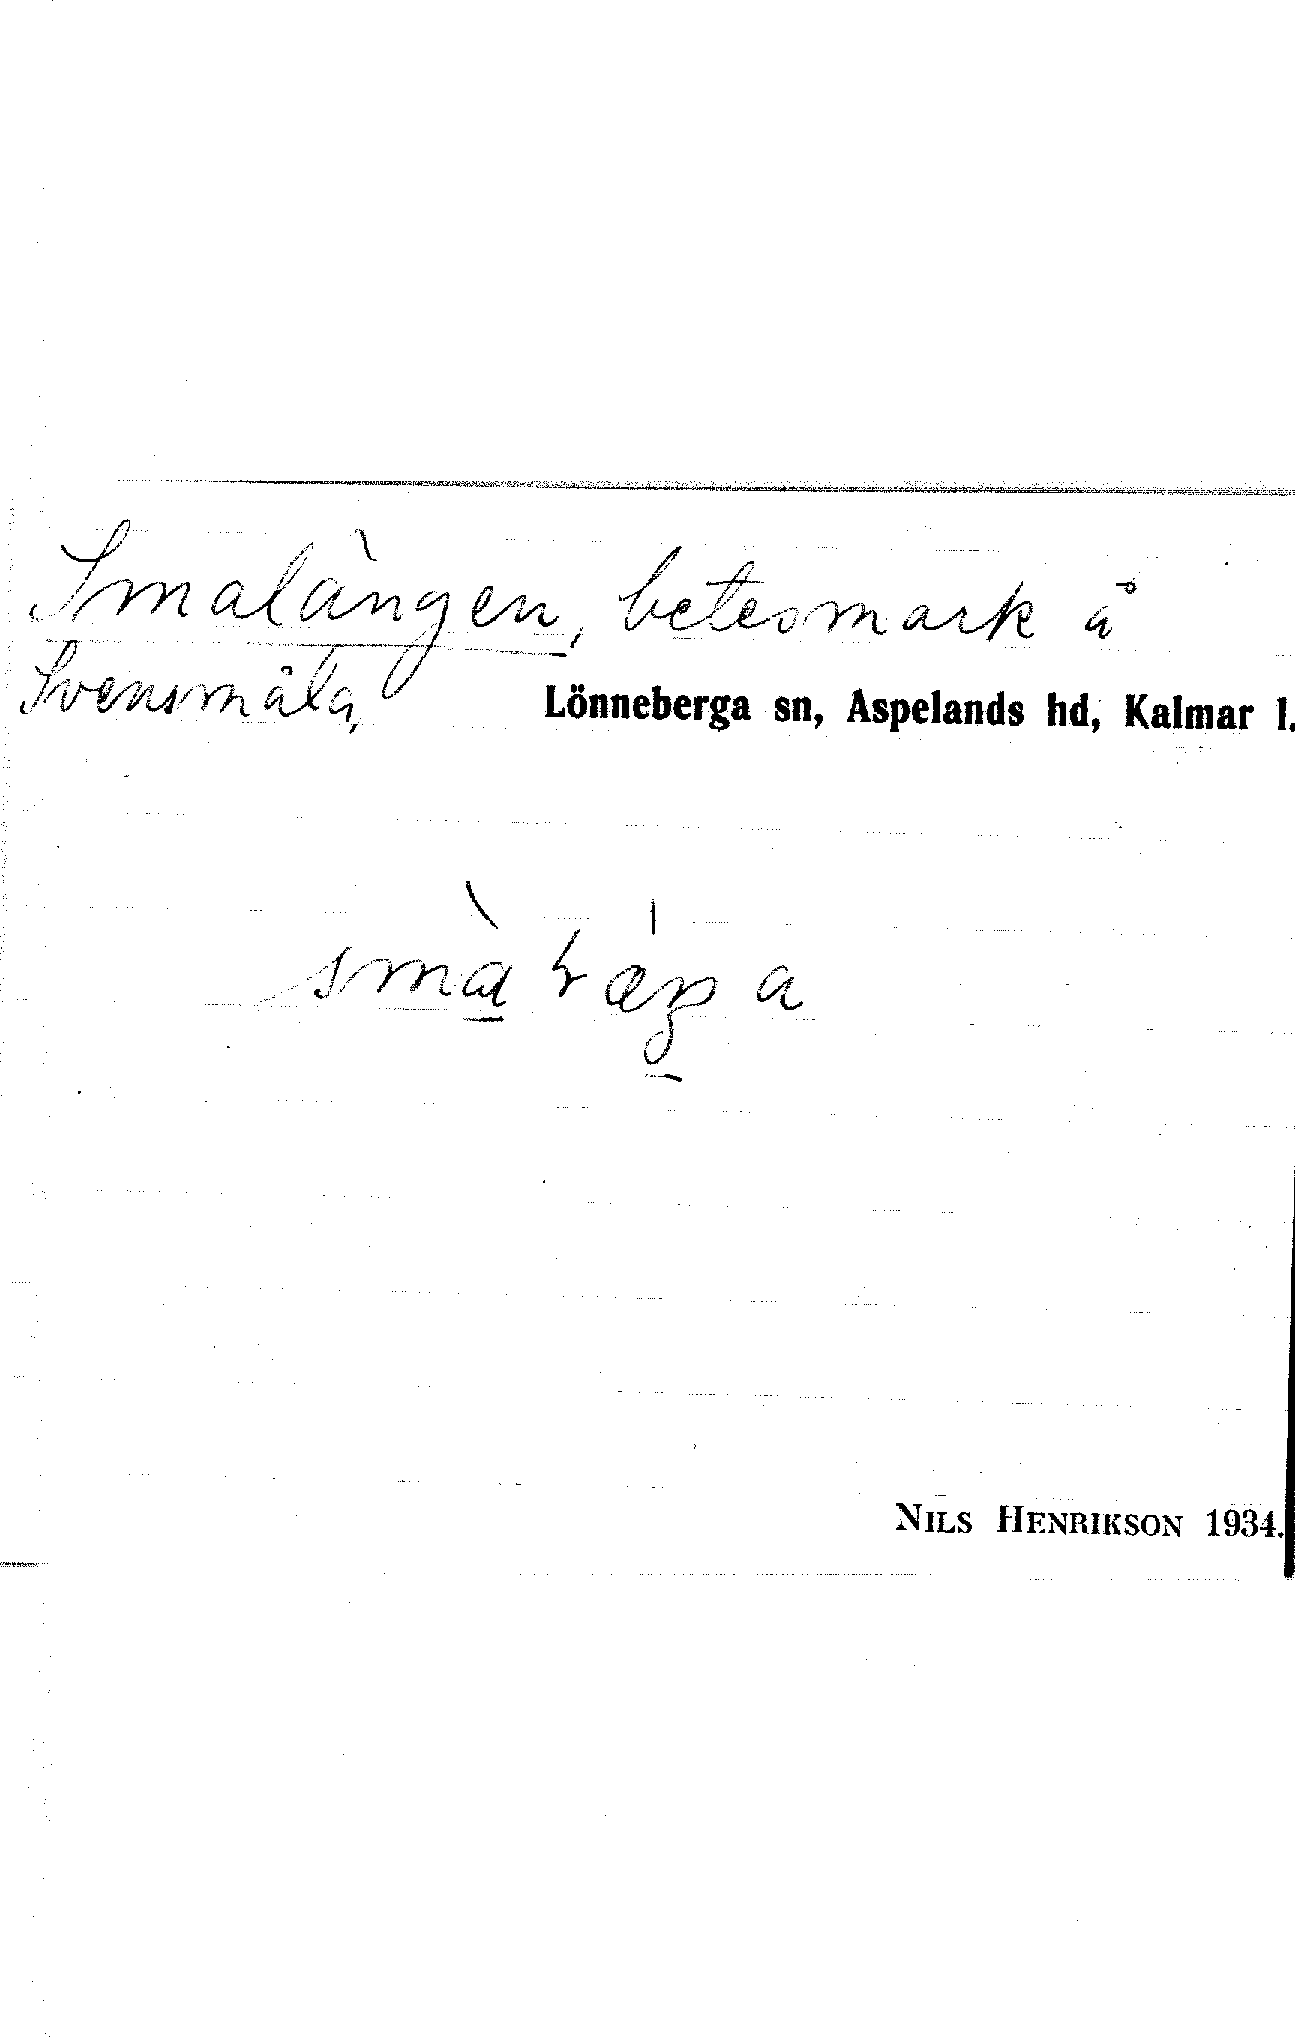 Smalängen, betesmark å
Svensmåla, Lönneberga sn, Aspelands hd, Kalmar l.
NILS HENRIKSON 1934.